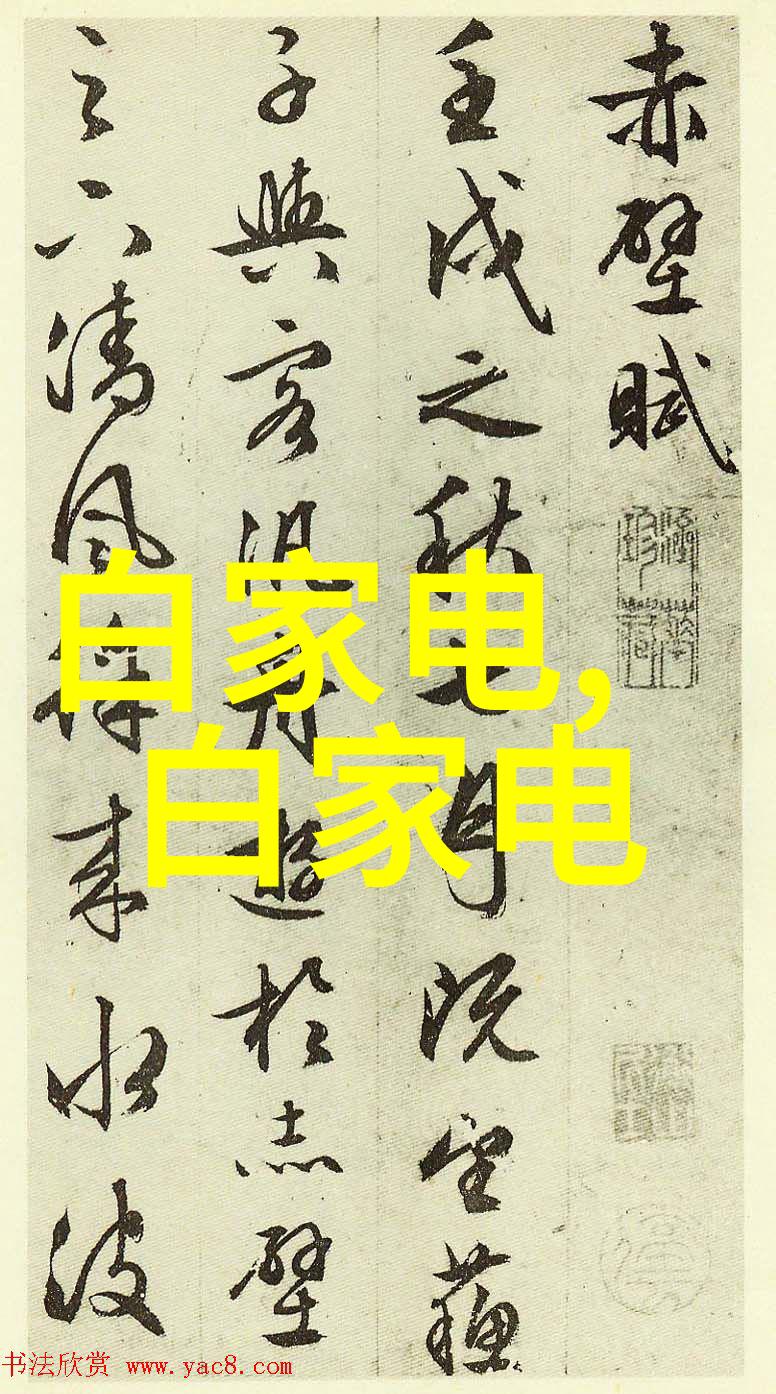 赤壁賦
壬戌之秋七月既望蘇
子與客汎舟遊於赤壁
之下清風徐來水波
白家电,
白家电
书法欣赏 www.yac8.com